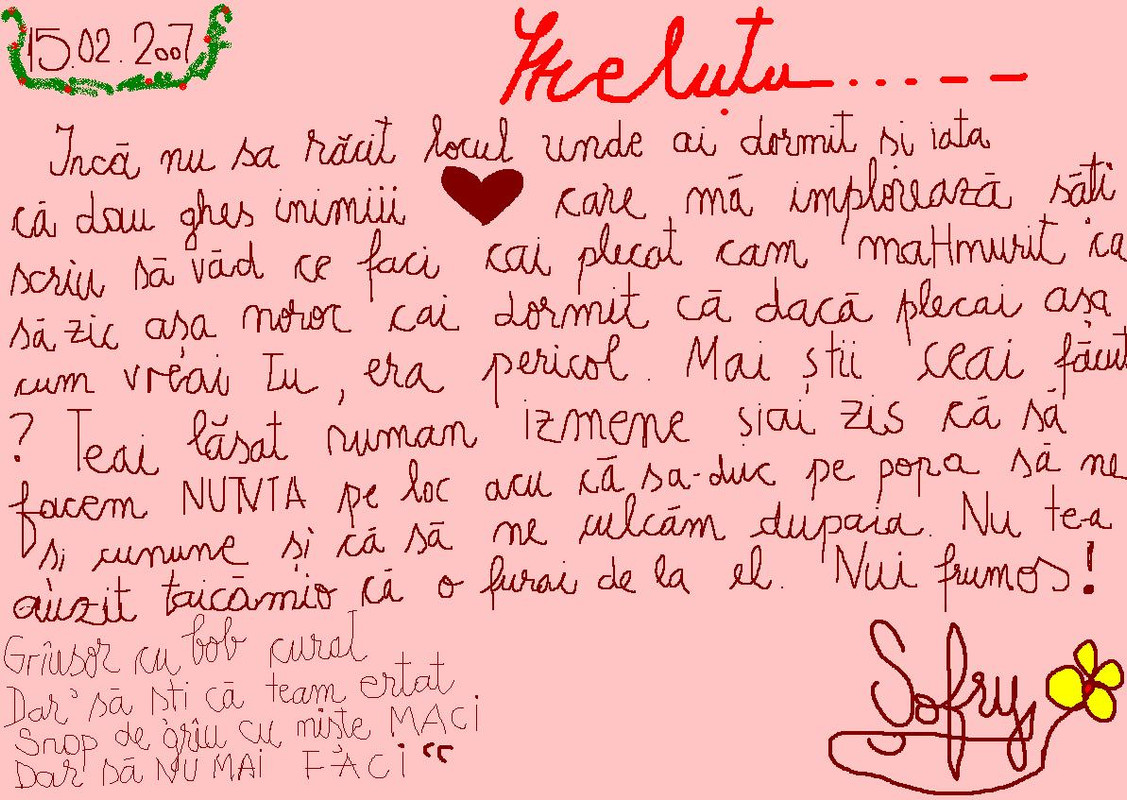 15.02.2007
Heluțu.....- -
Incă nu sa răcit locul unde ai dormit si iata
că dau ghes inimiii care mă implorează săti
scriu să văd ce faci cai plecat cam maHmurit ca
să zic așa noroc cai dormit că dacă plecai asa
cum vreai Tu, era pericol. Mai știi ceai făcut
? Teai lăsat numan izmene șiai zis că să
facem NUNTA pe loc acu că sa-duc pe popa să ne
si cunune și că să ne culcăm dupaia. Nu te-a
auzit taicămio că o furai de la el. Nui frumos!
Grîusor cu bob curat
Dar să sti că team ertat
Snop de grîu cu miște MACi
Dar să NU MAI FACi
Sofry